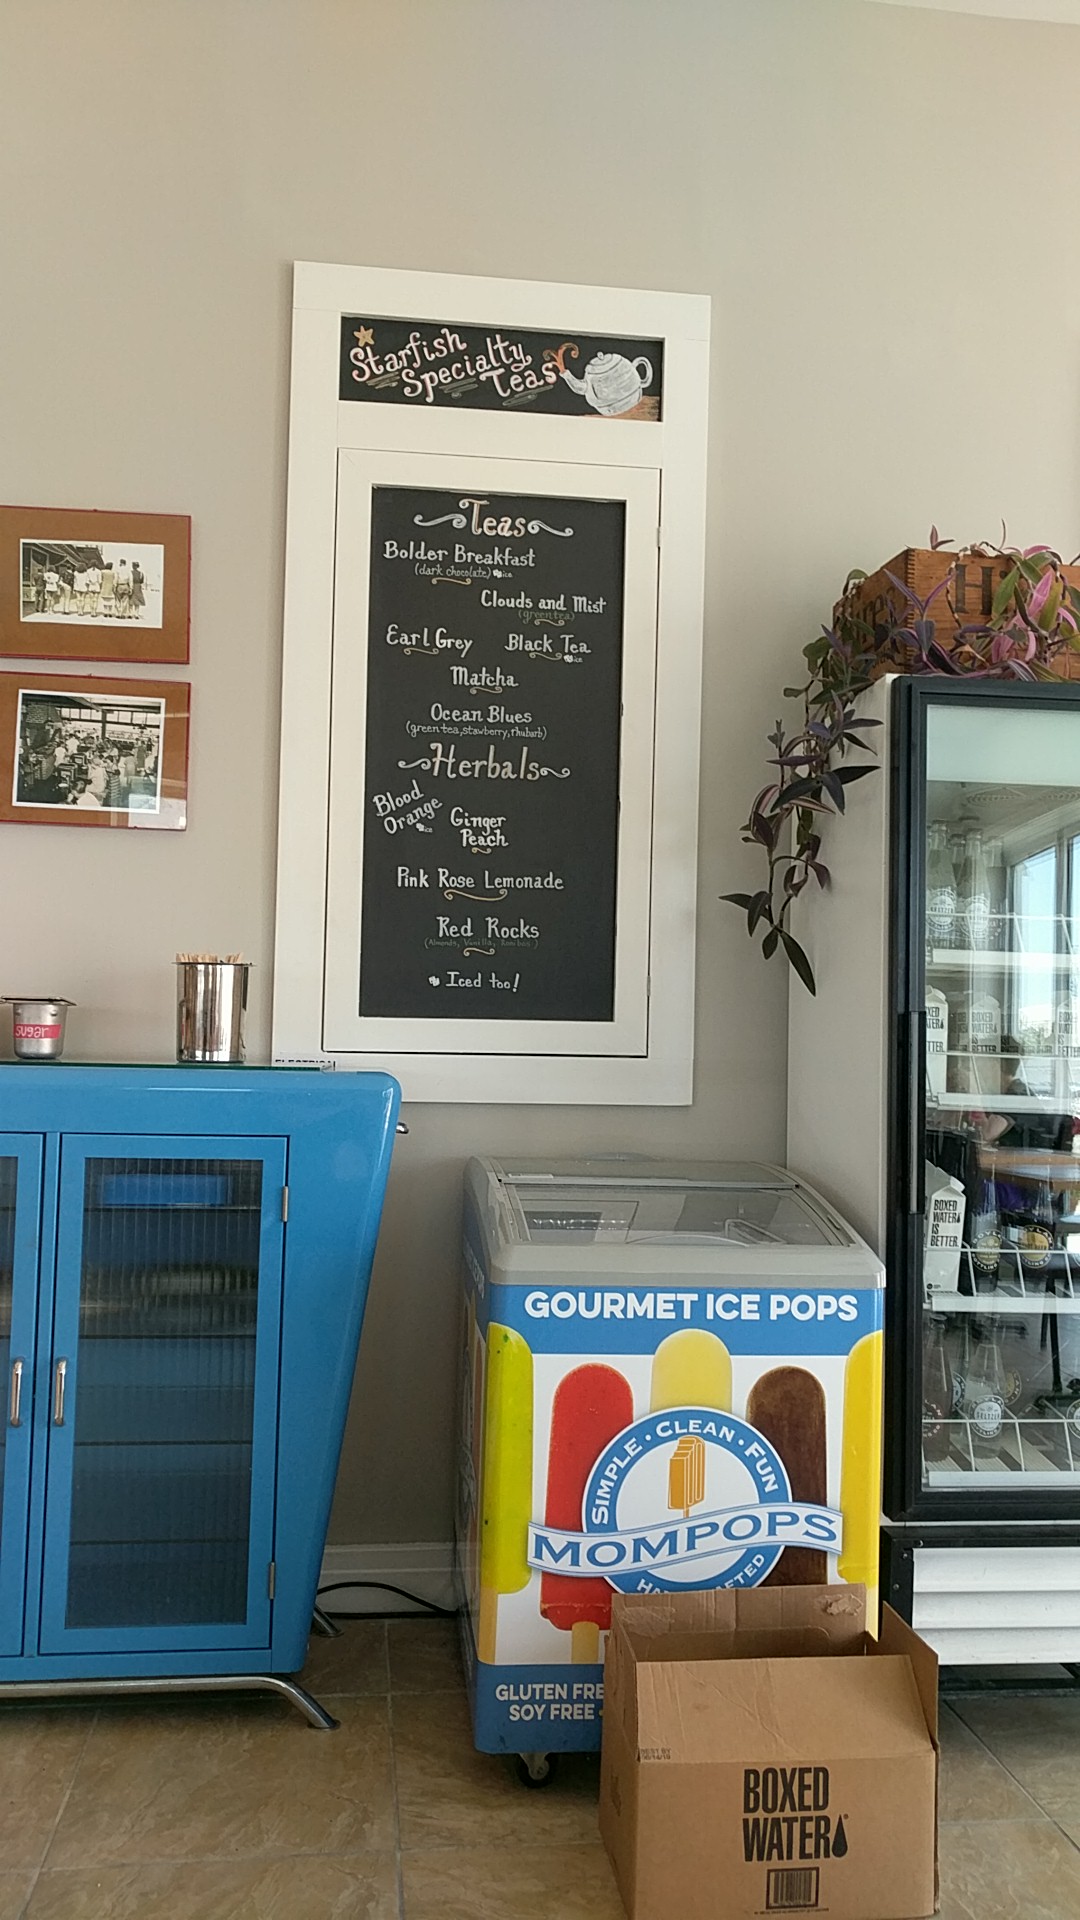 Starfish
Specialty
Teas
Teas
Bolder Breakfast
(dark chocolate) ice
Clouds and Mist
(green tea)
Earl Grey
Black Tea
ice
Matcha
Ocean Blues
(green tea, stawberry, rhubarb)
Herbals
Blood
Orange
ice
Ginger
Peach
Pink Rose Lemonade
Red Rocks
(Almonds, Vanilla, Rooibos)
Iced too!
sugar
ELECTRICAL
GOURMET ICE POPS
SIMPLE • CLEAN • FUN
MOMPOPS
GLUTEN FRE
SOY FREE •
BOXED
WATER
IS
BETTER.
BEST BY
BOXED
WATER